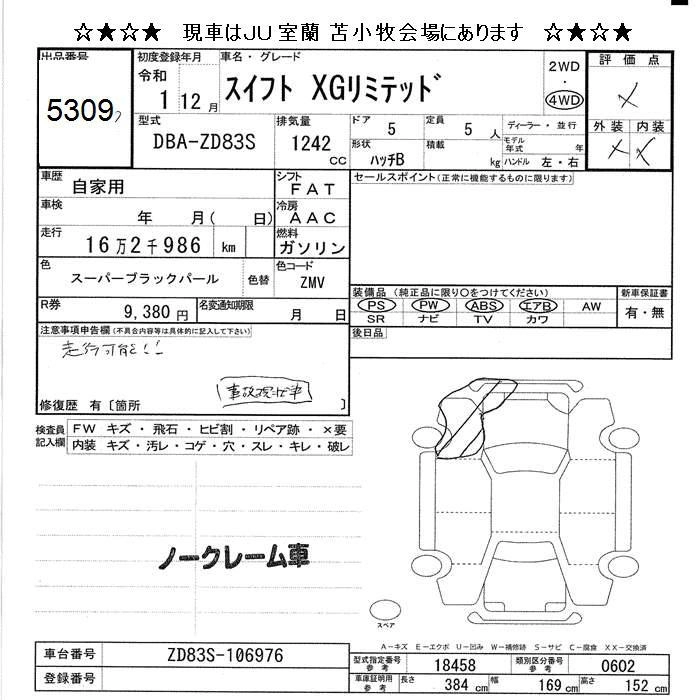 ☆★☆★ 現車はJU室蘭 苫小牧会場にあります ☆★☆★
出品番号 初度登録年月 車名・グレード 評価点
5309
令和 1 12月 スイフト XGリミテッド 2WD ・ 4WD
外装 内装
型式 排気量 ドア 定員 ディーラー・並行
DBA-ZD83S 1242 CC 5 5 人
形状 ハッチB 積載 kg モデル年式 年 ハンドル 左・右
車歴 自家用 シフト FAT セールスポイント(正常に機能するものに限ります)
車検 年 月( 日) 冷房 AAC
走行 16万2千986 km 燃料 ガソリン
色 スーパーブラックパール 色替 色コード ZMV
装備品 (純正品に限り〇をつけてください) 新車保証書
PS PW ABS エアB AW 有・無
SR ナビ TV カワ
R券 9,380円 名変通知期限 月 日
後日品
注意事項申告欄(不具合内容等は具体的に記入して下さい)
走行可能!!
事故現状車
修復歴 有〔箇所 〕
検査員記入欄 FW キズ・飛石・ヒビ割・リペア跡・×要
内装 キズ・汚レ・コゲ・穴・スレ・キレ・破レ
ノークレーム車
スペア
A-キズ E-エクボ U-凹み W-補修跡 S-サビ C-腐食 XX-交換済
車台番号 ZD83S-106976 型式指定番号 参考 18458 類別区分番号 参考 0602
登録番号 車庫証明用 参考 長さ 384 cm 幅 169 cm 高さ 152 cm